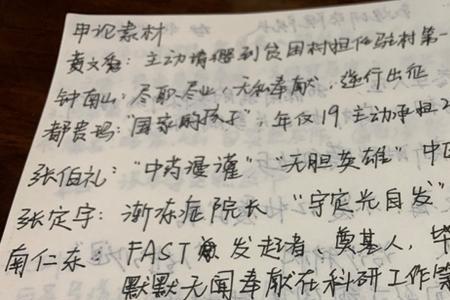 申论素材
黄文秀：主动请缨到贫困村担任驻村第一
钟南山：尽职尽业，无私奉献，逆行出征
都贵玛："国家的孩子"，年仅19主动承担2
张伯礼："中药漫灌" "无胆英雄" 中
张定宇：渐冻症院长 "守定光自发"
南仁东：FAST 发起者，奠基人，毕
默默无闻奉献在科研工作